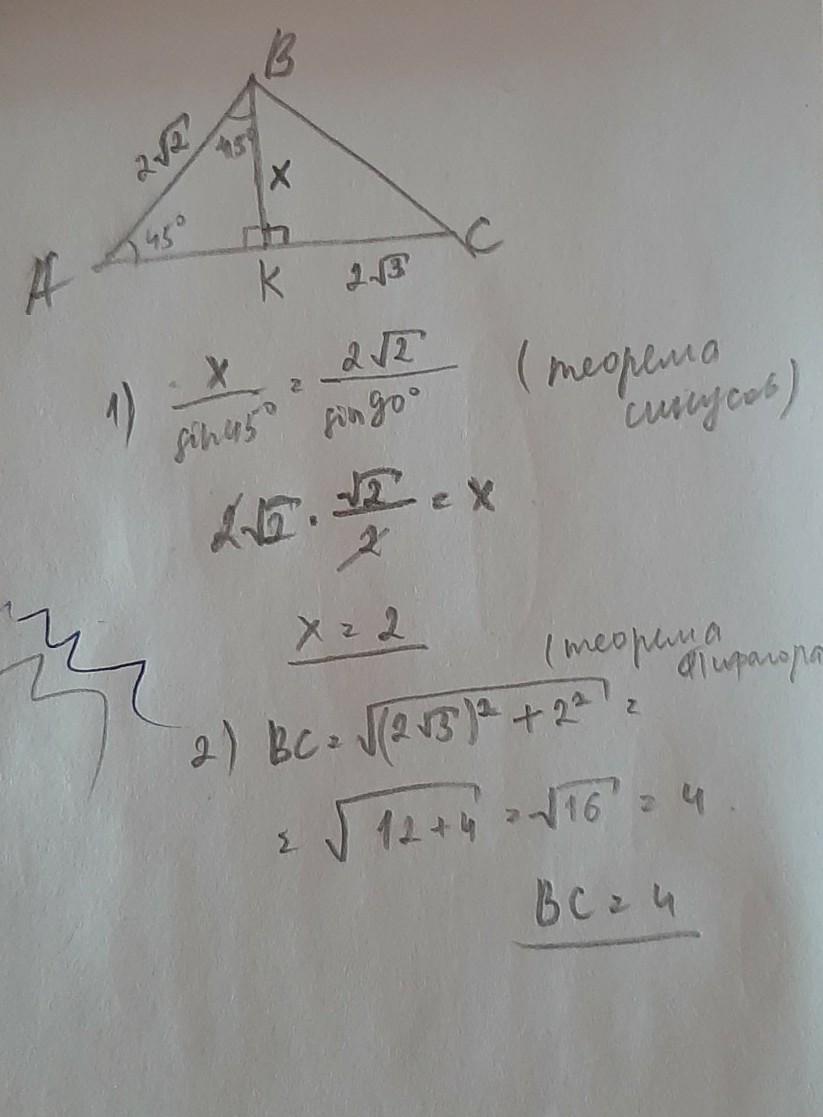 B
2√2
45°
x
45°
A
K
2√3
C
1) x/sin45° = 2√2/sin90° (теорема синусов)
2√2 · √2/2 = x
x = 2
(теорема Пифагора
2) BC = √((2√3)² + 2²) =
= √(12+4) = √16 = 4.
BC = 4